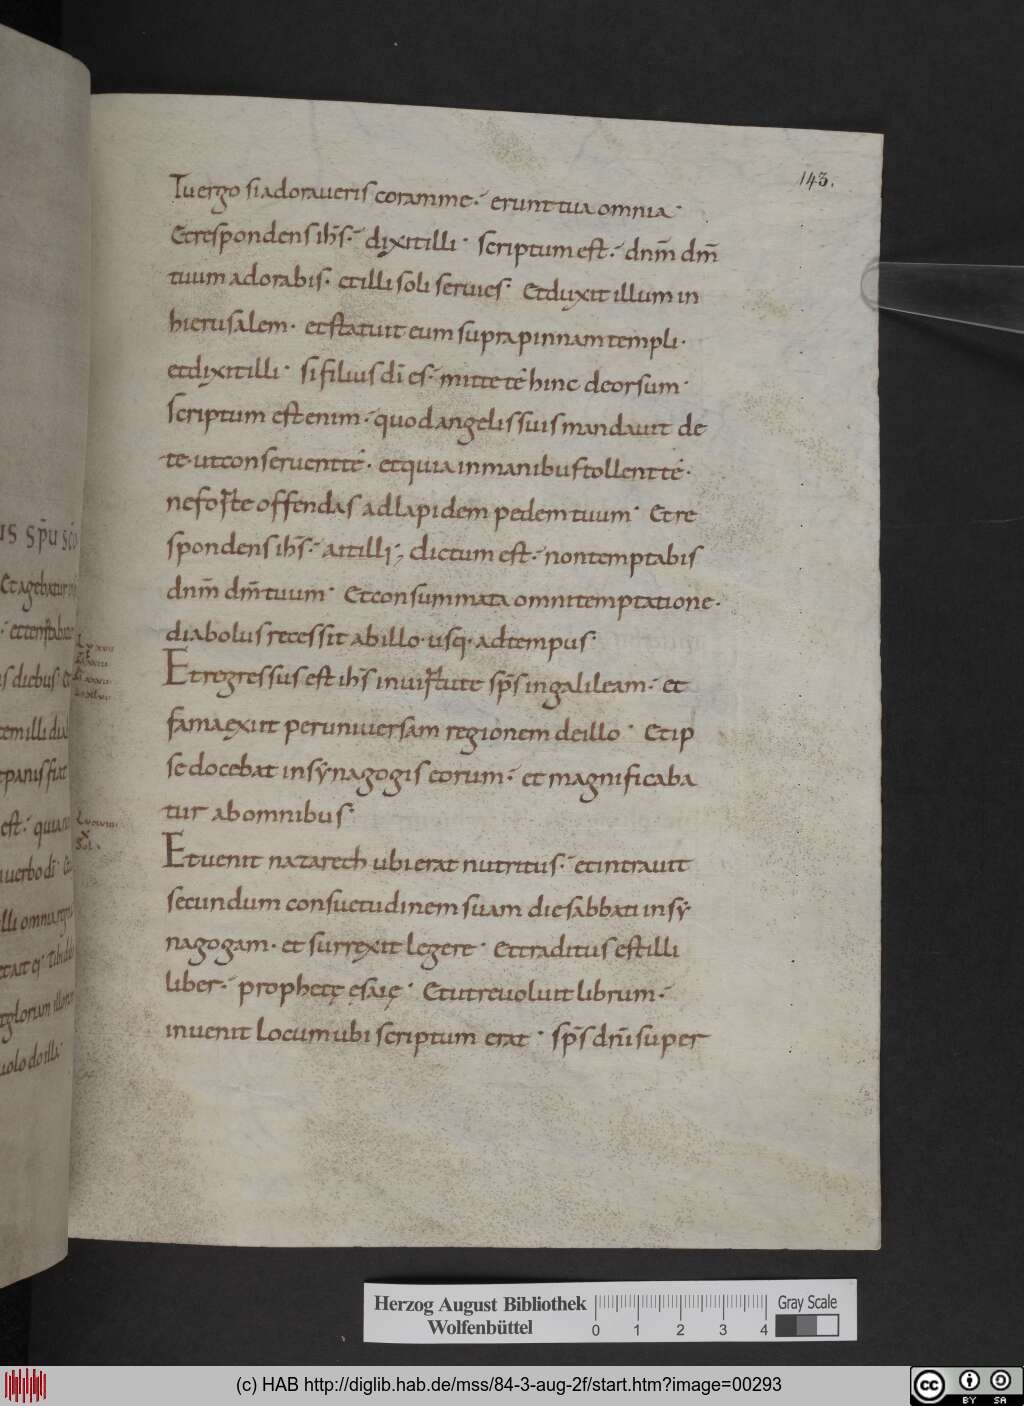 143.
Tu ergo si adoraueris coram me· erunt tua omnia·
Et respondens ihs̄· dixit illi· scriptum est· dnm̄ dm̄
tuum adorabis· et illi soli seruies· Et duxit illum in
hierusalem· et statuit eum supra pinnam templi·
et dixit illi· si filius dī es· mitte te hinc deorsum·
scriptum est enim· quod angelis suis mandauit de
te· ut conseruent te· et quia in manibus tollent te·
ne forte offendas ad lapidem pedem tuum· Et re
spondens ihs̄· ait illi; dictum est· non temptabis
dnm̄ dm̄ tuum· Et consummata omni temptatione·
diabolus recessit ab illo· usq· ad tempus·
Et regressus est ihs̄ in uirtute sps̄ in galileam· et
fama exiit per uniuersam regionem de illo· Et ip
se docebat in synagogis eorum· et magnificaba
tur ab omnibus·
Et uenit nazareth ubi erat nutritus· et intrauit
secundum consuetudinem suam die sabbati in sy
nagogam· et surrexit legere· Et traditus est illi
liber· prophetę esaię· Et ut reuoluit librum·
inuenit locum ubi scriptum erat· sps̄ dnī super
Herzog August Bibliothek
Wolfenbüttel
0 1 2 3 4
Gray Scale
(c) HAB http://diglib.hab.de/mss/84-3-aug-2f/start.htm?image=00293
cc BY SA